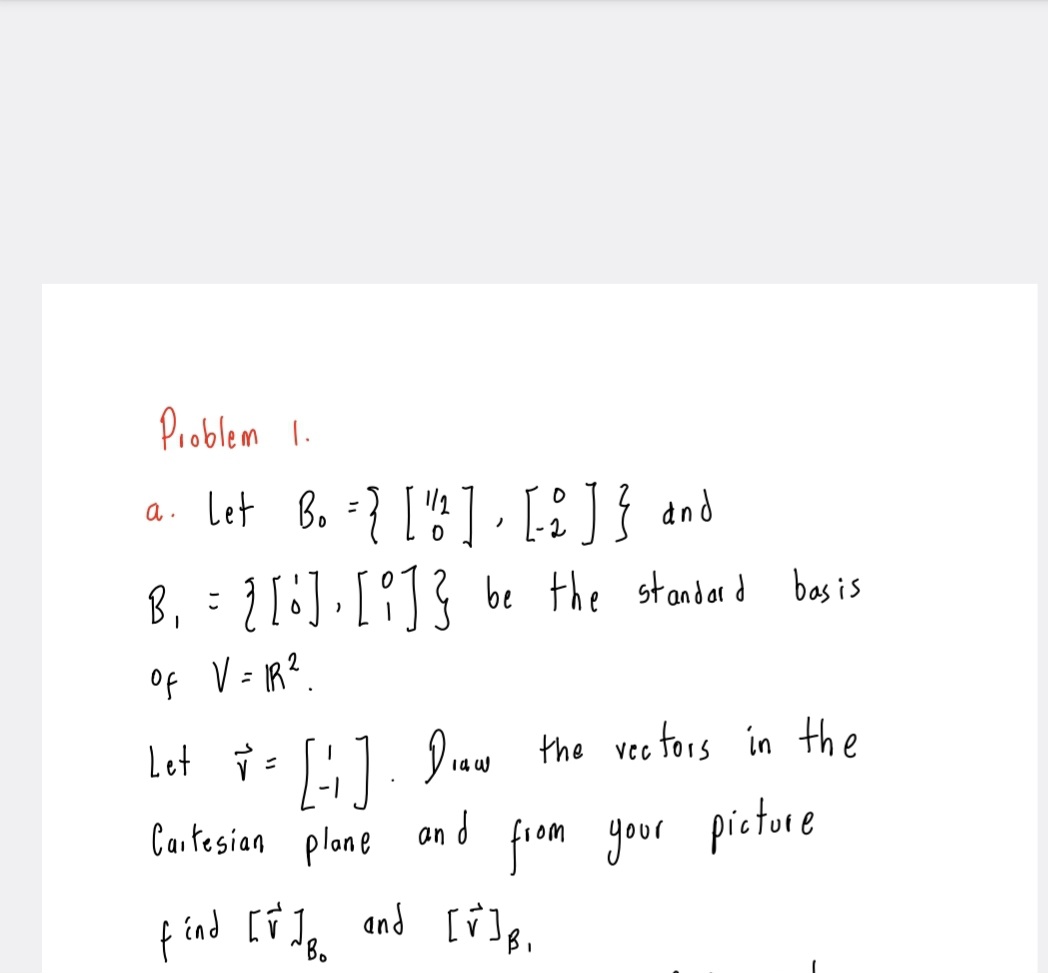 Problem 1.
a. Let B₀ = { [1/2 0], [0 -2] } and
B₁ = { [1 0], [0 1] } be the standard basis
of V = ℝ².
Let v⃗ = [1 -1]. Draw the vectors in the
Cartesian plane and from your picture
find [v⃗]B₀ and [v⃗]B₁